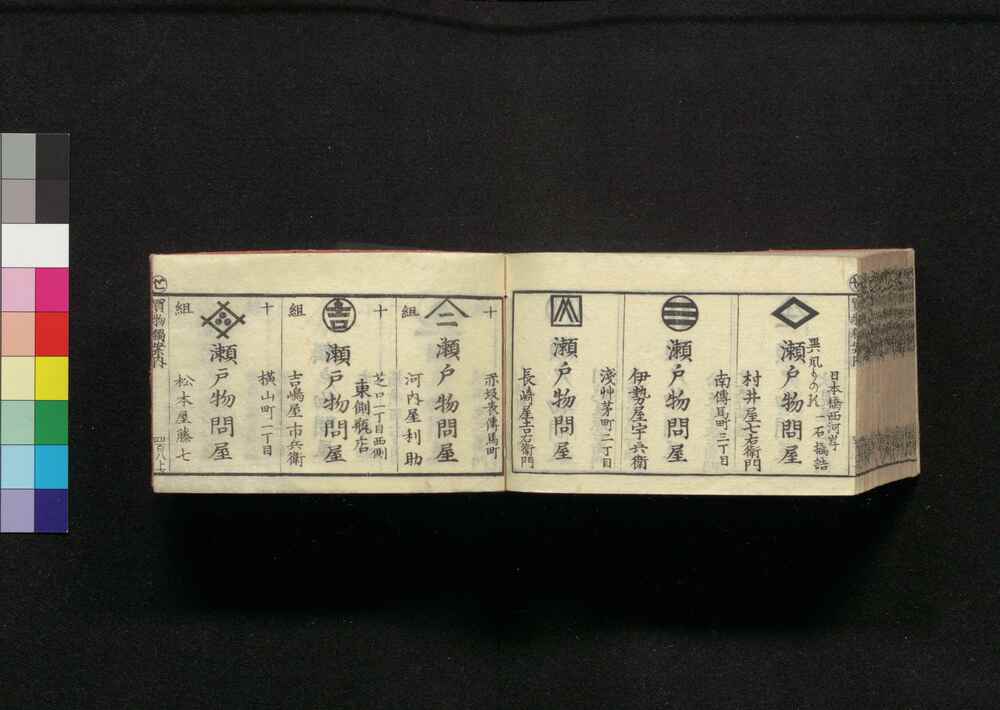 日本橋西河岸
一石橋詰
瀬戸物問屋
村井屋七右衛門
南傳馬町三丁目
瀬戸物問屋
伊勢屋宇兵衛
浅艸茅町二丁目
瀬戸物問屋
長崎屋吉右衛門
十
赤坂表傳馬町
二
瀬戸物問屋
組
河内屋利助
十
芝口一丁目西側
東側瓶店
吉
瀬戸物問屋
組
吉嶋屋市兵衛
十
横山町一丁目
瀬戸物問屋
組
松本屋藤七
せ
買物獨案内
四百八上